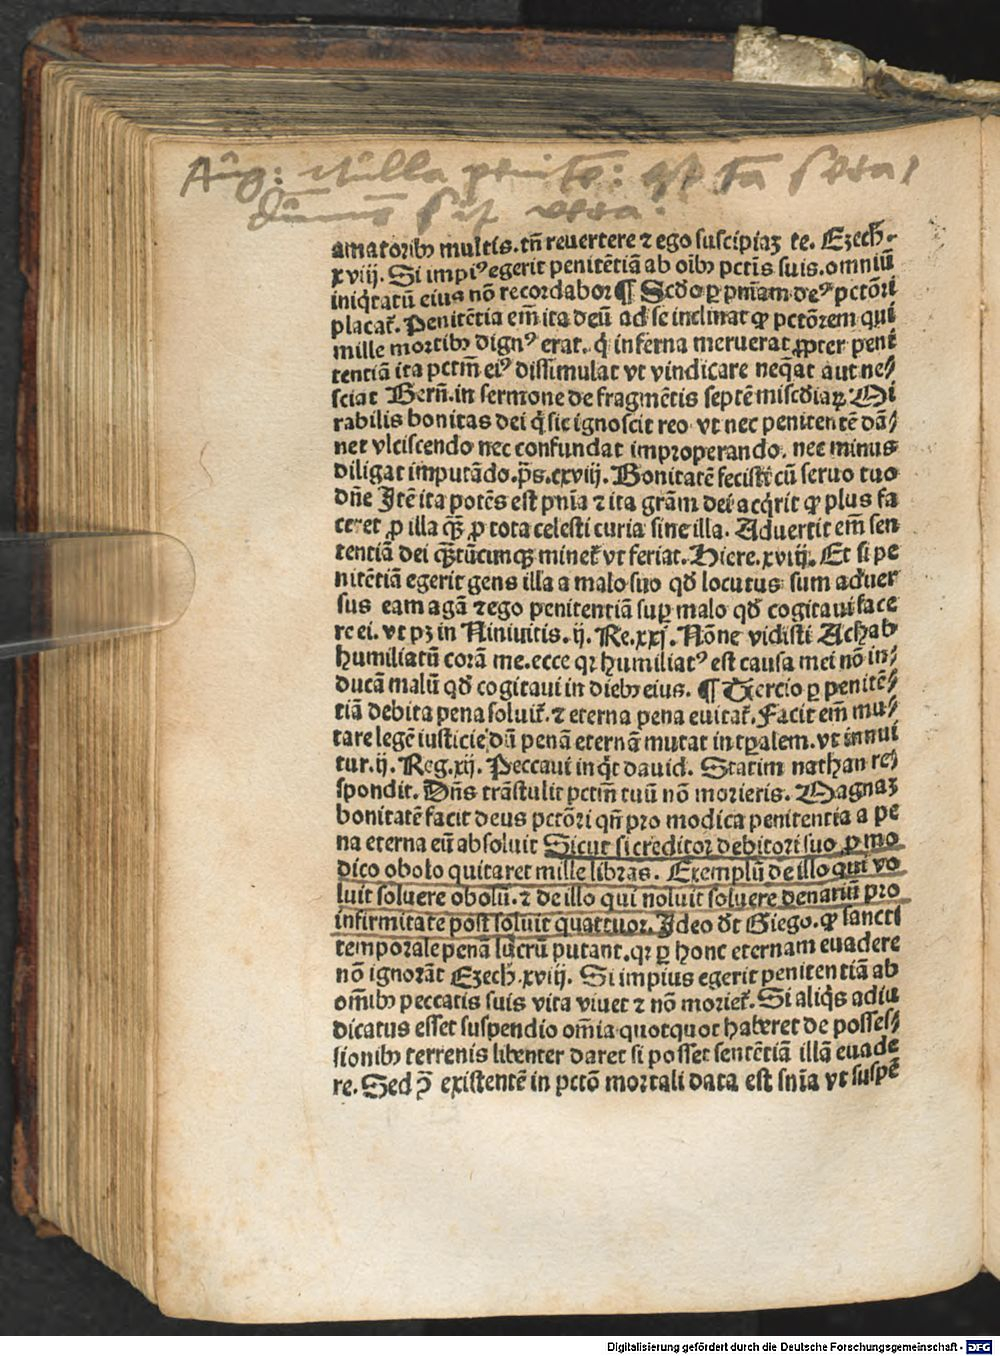 Aug: Nulla penitē: est tā sera,
dūmo sit vera.
amatoribꝰ multis. tñ reuertere ⁊ ego suscipiaꝫ te. Ezech̄.
xviij. Si impiꝰ egerit penitētiā ab oībꝰ pctīs suis. omniū
iniq̄tatū eius nō recordabor ¶ Scďo ꝑ pn̄iam deꝰ pctōri
placat̄. Penitētia em̄ ita deū ad se inclinat ꝙ pctōrem qui
mille mortibꝰ dignꝰ erat. q̄ inferna meruerat ꝓpter peni
tentiā ita pctm̄ eiꝰ dissimulat vt vindicare neq̄at aut ne⸗
sciat Bern̄. in sermone de fragmētis septē misc̄diaꝝ. Mi
rabilis bonitas dei q̄ sic ignoscit reo vt nec penitentē dā⸗
net vlciscendo nec confundat improperando. nec minus
diligat imputādo. p̄s. cxviij. Bonitatē fecisti cū seruo tuo
dn̄e Itē ita potēs est pn̄ia ⁊ ita grām dei acq̄rit ꝙ plus fa
ceret ꝓ illa q̄ꝫ ꝓ tota celesti curia sine illa. Aduertit em̄ sen
tentiā dei q̄ꝫtūcunqꝫ minet̄ vt feriat. Hiere. xviij. Et si pe
nitētiā egerit gens illa a malo suo qď locutus sum aduer
sus eam agā ⁊ ego penitentiā suꝑ malo qď cogitaui face
re ei. vt pꝫ in Niniuitis. ij. Re. xxj. Nōne vidisti Achab
humiliatū corā me. ecce qꝛ humiliatꝰ est causa mei nō in⸗
ducā malū qď cogitaui in diebꝰ eius. ¶ Tercio ꝑ penitē⸗
tiā debita pena soluit̄. ⁊ eterna pena euitat̄. Facit em̄ mu⸗
tare legē iusticie dū penā eternā mutat in tꝑalem. vt innui
tur. ij. Reg. xij. Peccaui inq̄t dauid. Statim nathan re⸗
spondit. Dn̄s trāstulit pctm̄ tuū nō morieris. Magnaꝫ
bonitatē facit deus pctōri qn̄ pro modica penitentia a pe
na eterna eū absoluit Sicut si creditor debitori suo ꝑ mo
dico obolo quitaret mille libras. Exemplū de illo qui vo
luit soluere obolū. ⁊ de illo qui noluit soluere denariū pro
infirmitate post soluit quattuor. Ideo dt̄ Grego. ꝙ sancti
temporale penā lucrū putant. qꝛ ꝑ honc eternam euadere
nō ignorāt Ezech̄. xviij. Si impius egerit penitentiā ab
om̄ibꝰ peccatis suis vita viuet ⁊ nō moriet̄. Si aliq̄s adiu
dicatus esset suspendio om̄ia quotquot haberet de posses⸗
sionibꝰ terrenis libenter daret si posset sentētiā illā euade
re. Sed ꝯ̄ existentē in pctō mortali data est sn̄ia vt suspē
Digitalisierung gefördert durch die Deutsche Forschungsgemeinschaft - DFG